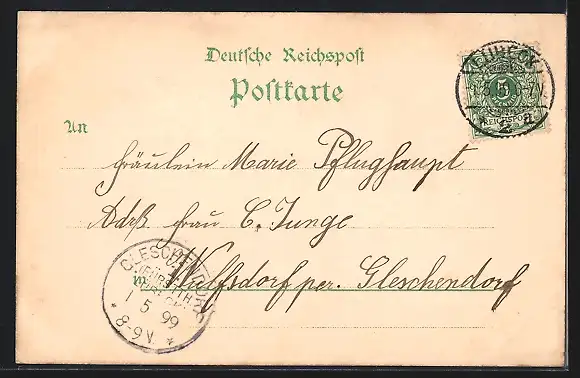 Deutsche Reichspost
Postkarte
LÜBECK
5
REICHSPOST
2 a
An
Fräulein Marie Pflughaupt
Adr. Frau C. Junge
Wulfsdorf per. Gleschendorf
GLESCHENDORF
(FÜRSTTH.
LÜBECK)
1 5 99
* 8-9V. *